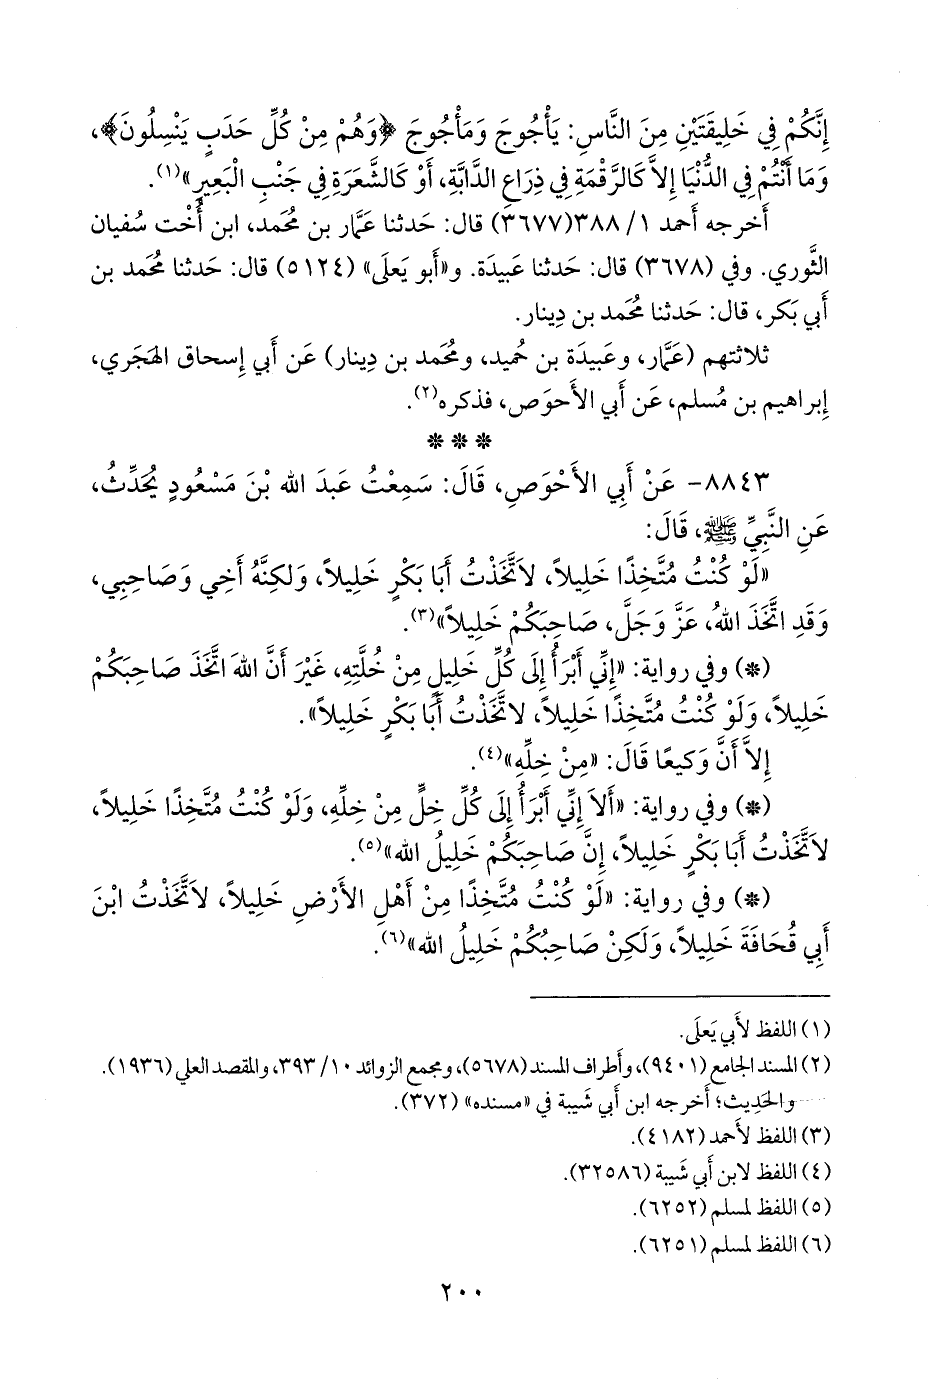 إِنَّكُمْ فِي خَلِيقَتَيْنِ مِنَ النَّاسِ: يَأْجُوجَ وَمَأْجُوجَ ﴿وَهُمْ مِنْ كُلِّ حَدَبٍ يَنْسِلُونَ﴾،
وَمَا أَنْتُمْ فِي الدُّنْيَا إِلاَّ كَالرَّقْمَةِ فِي ذِرَاعِ الدَّابَّةِ، أَوْ كَالشَّعَرَةِ فِي جَنْبِ الْبَعِيرِ»(١).
أَخرجه أَحمد ١/ ٣٨٨(٣٦٧٧) قال: حَدثنا عَمَّار بن مُحَمد، ابن أُخْت سُفيان
الثَّوري. وفي (٣٦٧٨) قال: حَدثنا عَبيدَة. و«أَبو يَعلَى» (٥١٢٤) قال: حَدثنا مُحَمد بن
أَبي بَكر، قال: حَدثنا مُحَمد بن دِينار.
ثلاثتهم (عَمَّار، وعَبيدَة بن حُميد، ومُحَمد بن دِينار) عَن أَبي إِسحاق الهَجَري،
إِبراهيم بن مُسلم، عَن أَبي الأَحوَص، فذكره(٢).
* * *
٨٨٤٣- عَنْ أَبِي الأَحْوَصِ، قَالَ: سَمِعْتُ عَبدَ الله بْنَ مَسْعُودٍ يُحَدِّثُ،
عَنِ النَّبِيِّ ﷺ، قَالَ:
«لَوْ كُنْتُ مُتَّخِذًا خَلِيلاً، لاَتَّخَذْتُ أَبَا بَكْرٍ خَلِيلاً، وَلكِنَّهُ أَخِي وَصَاحِبِي،
وَقَدِ اتَّخَذَ اللهُ، عَزَّ وَجَلَّ، صَاحِبَكُمْ خَلِيلاً»(٣).
(*) وفي رواية: «إِنِّي أَبْرَأُ إِلَى كُلِّ خَلِيلٍ مِنْ خُلَّتِهِ، غَيْرَ أَنَّ اللهَ اتَّخَذَ صَاحِبَكُمْ
خَلِيلاً، وَلَوْ كُنْتُ مُتَّخِذًا خَلِيلاً، لاتَّخَذْتُ أَبَا بَكْرٍ خَلِيلاً».
إِلاَّ أَنَّ وَكِيعًا قَالَ: «مِنْ خِلِّهِ»(٤).
(*) وفي رواية: «أَلاَ إِنِّي أَبْرَأُ إِلَى كُلِّ خِلٍّ مِنْ خِلِّهِ، وَلَوْ كُنْتُ مُتَّخِذًا خَلِيلاً،
لاَتَّخَذْتُ أَبَا بَكْرٍ خَلِيلاً، إِنَّ صَاحِبَكُمْ خَلِيلُ الله»(٥).
(*) وفي رواية: «لَوْ كُنْتُ مُتَّخِذًا مِنْ أَهْلِ الأَرْضِ خَلِيلاً، لاَتَّخَذْتُ ابْنَ
أَبِي قُحَافَةَ خَلِيلاً، وَلَكِنْ صَاحِبُكُمْ خَلِيلُ الله»(٦).
(١) اللفظ لأَبي يَعلَى.
(٢) المسند الجامع (٩٤٠١)، وأَطراف المسند (٥٦٧٨)، ومجمع الزوائد ١٠/ ٣٩٣، والمقصد العلي (١٩٣٦).
والحَدِيث؛ أَخرجه ابن أَبي شَيبة في «مسنده» (٣٧٢).
(٣) اللفظ لأَحمد (٤١٨٢).
(٤) اللفظ لابن أَبي شَيبة (٣٢٥٨٦).
(٥) اللفظ لمسلم (٦٢٥٢).
(٦) اللفظ لمسلم (٦٢٥١).
٢٠٠